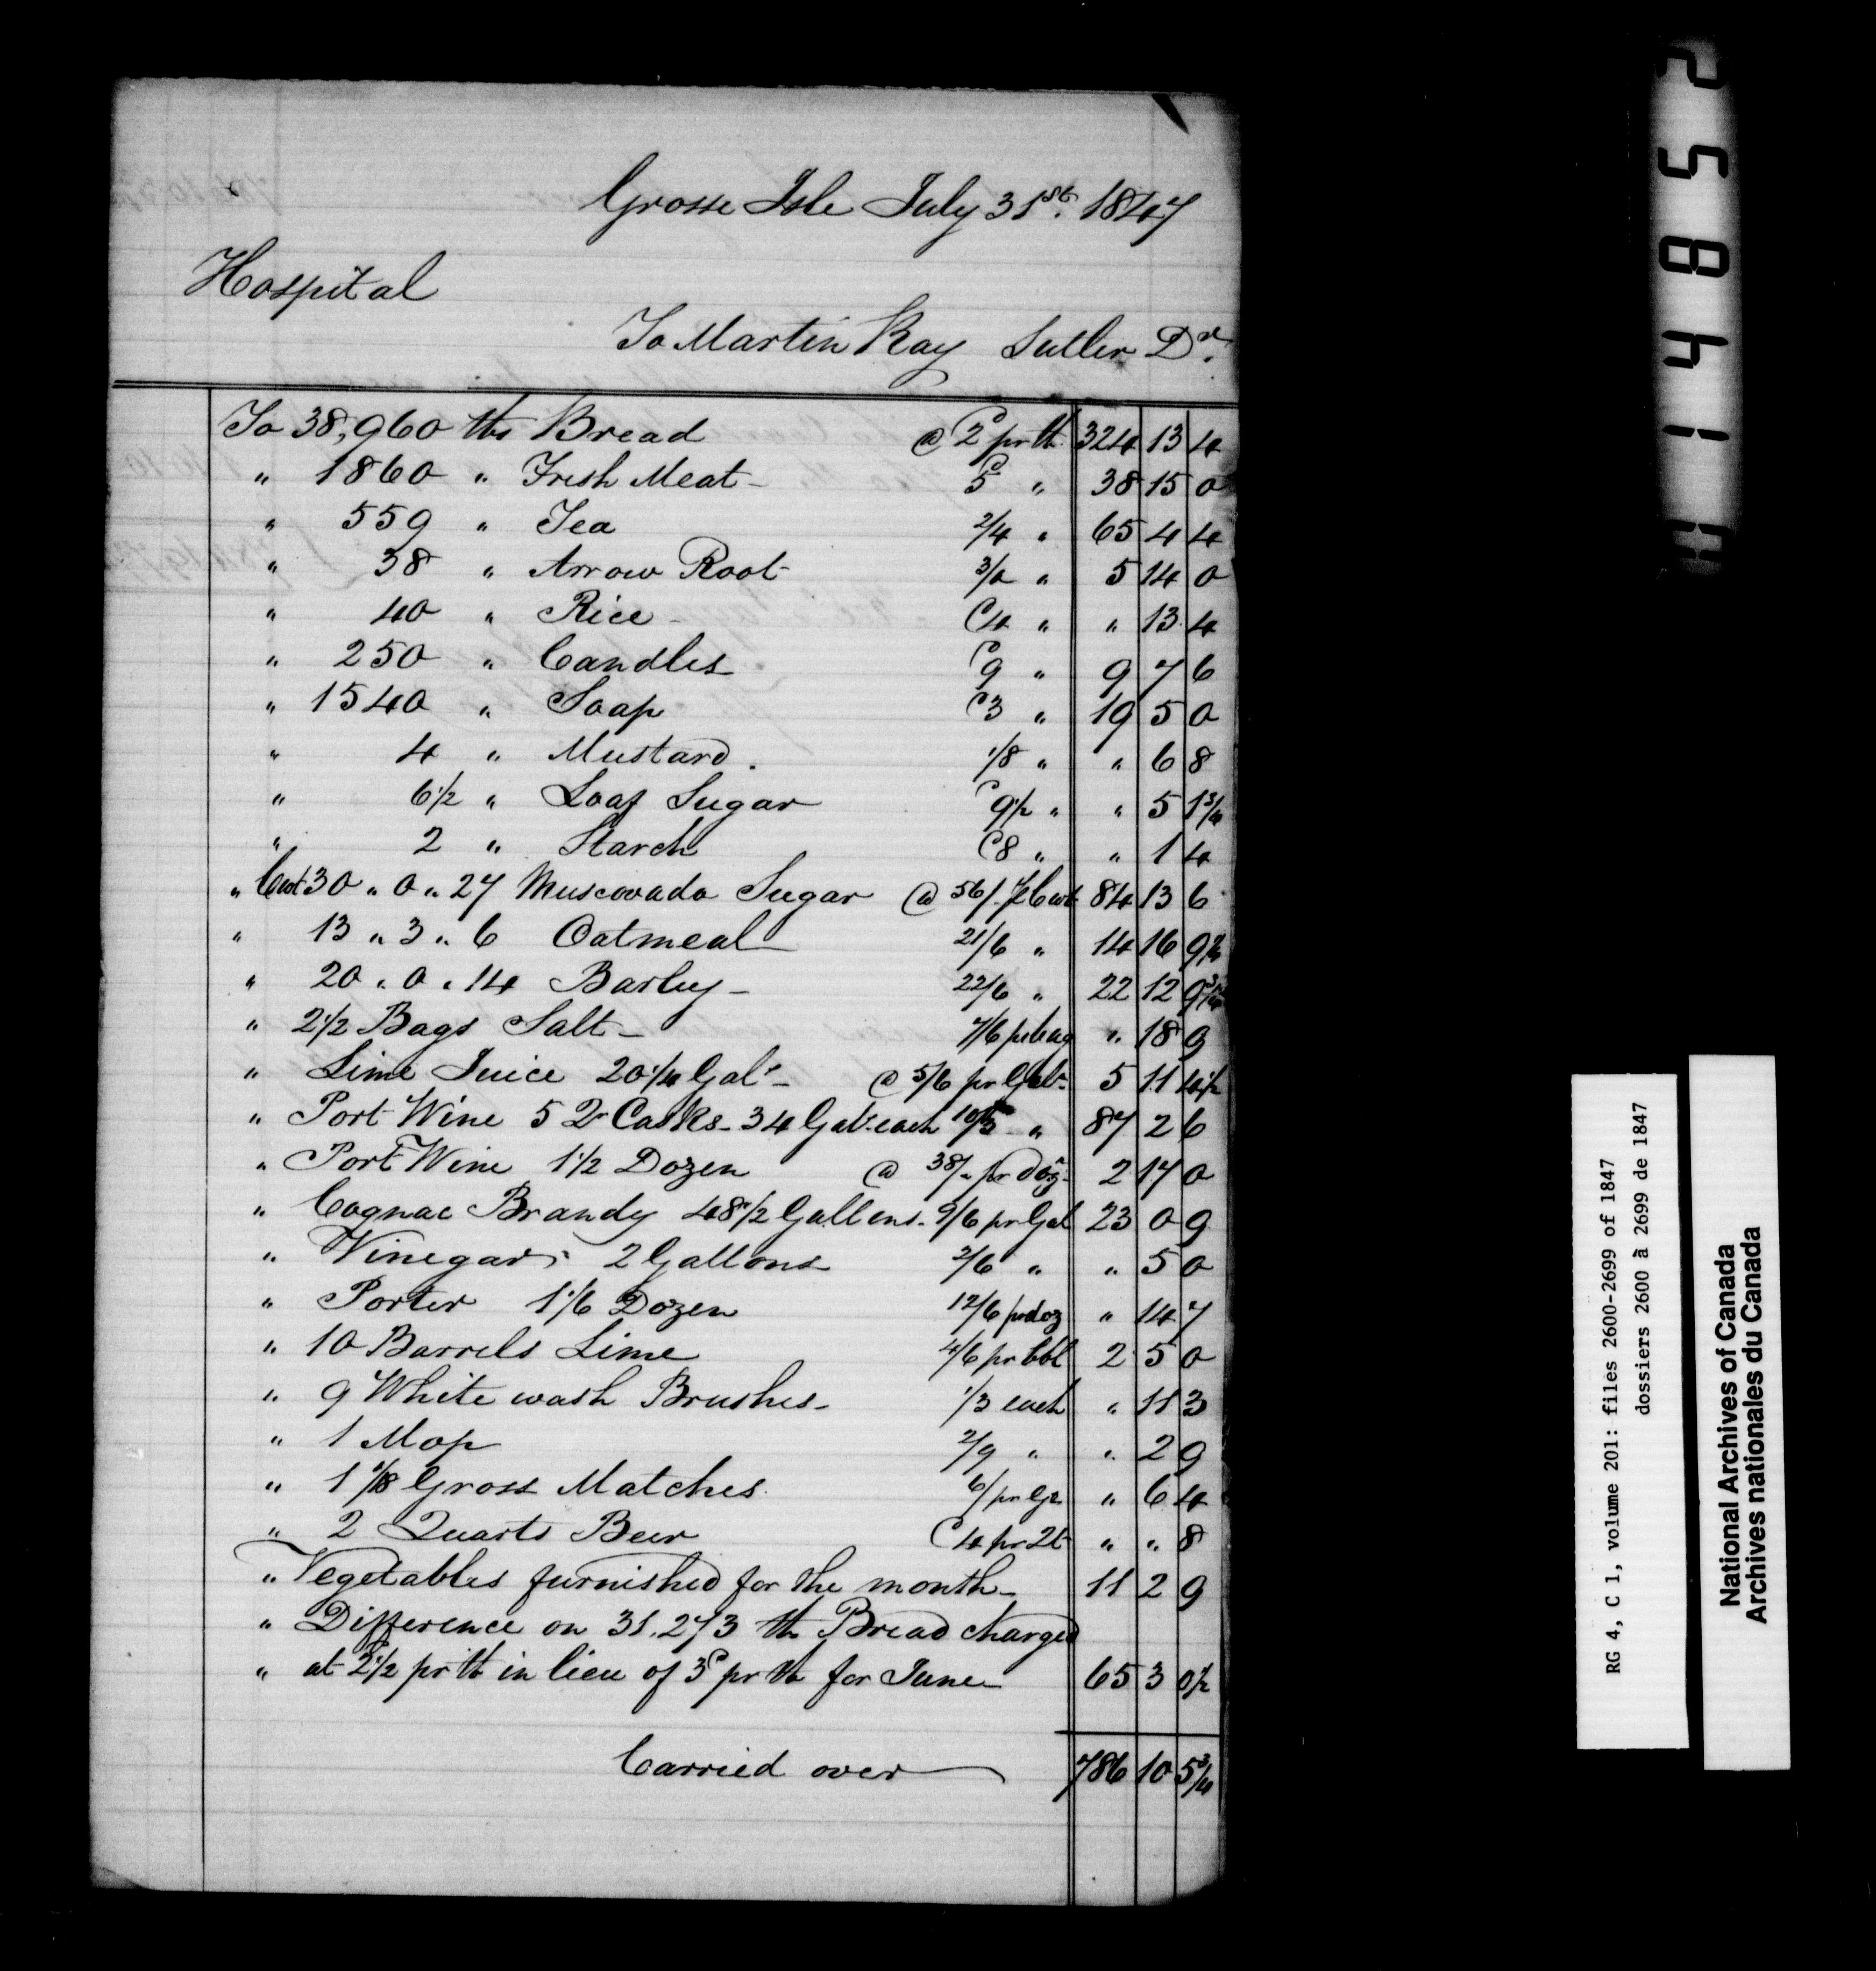 Grosse Isle July 31st. 1847
Hospital
To Martin Ray Sutler Dr.
To 38,960 lbs Bread @ 2d pr lb 324 13 4
" 1860 " Fresh Meat - 5d " 38 15 0
" 559 " Tea 2/4 " 65 4 4
" 38 " Arrow Root 3/0 " 5 14 0
" 40 " Rice - d4 " " 13 4
" 250 " Candles d9 " 9 7 6
" 1540 " Soap d3 " 19 5 0
" 4 " Mustard. 1/8 " " 6 8
" 6 1/2 " Loaf Sugar d9 1/2 " " 5 1 3/4
" 2 " Starch d8 " " 1 4
" Cwt 30 " 0 " 27 Muscovado Sugar @ 56/- p Cwt 84 13 6
" 13 " 3 " 6 Oatmeal 21/6 " 14 16 9 1/2
" 20 " 0 " 14 Barley - 22/6 " 22 12 9 3/4
" 2 1/2 Bags Salt - 7/6 pr bag " 18 9
" Lime Juice 20 1/4 Gals - @ 5/6 pr Gal - 5 11 4 1/2
" Port Wine 5 Qr Casks - 34 Gals each 10/3 " 87 2 6
" Port Wine 1 1/2 Dozen @ 38/- pr doz - 2 17 0
" Cognac Brandy 48 1/2 Gallons - 9/6 pr Gal 23 0 9
" Vinegar 2 Gallons 2/6 " " 5 0
" Porter 1 1/6 Dozen 12/6 pr doz " 14 7
" 10 Barrels Lime 4/6 pr bbl 2 5 0
" 9 White wash Brushes - 1/3 each " 11 3
" 1 Mop 2/9 " " 2 9
" 1 1/18 Gross Matches 6/ pr Gr " 6 4
" 2 Quarts Beer d4 pr Qt " " 8
" Vegetables furnished for the month - 11 2 9
" Difference on 31,273 lb Bread charged
" at 2 1/2 pr lb in lieu of 3d pr lb for June - 65 3 0 1/2
Carried over 786 10 5 3/4
RG 4, C 1, volume 201: files 2600-2699 of 1847
dossiers 2600 à 2699 de 1847
National Archives of Canada
Archives nationales du Canada
H 1 4 8 5 2